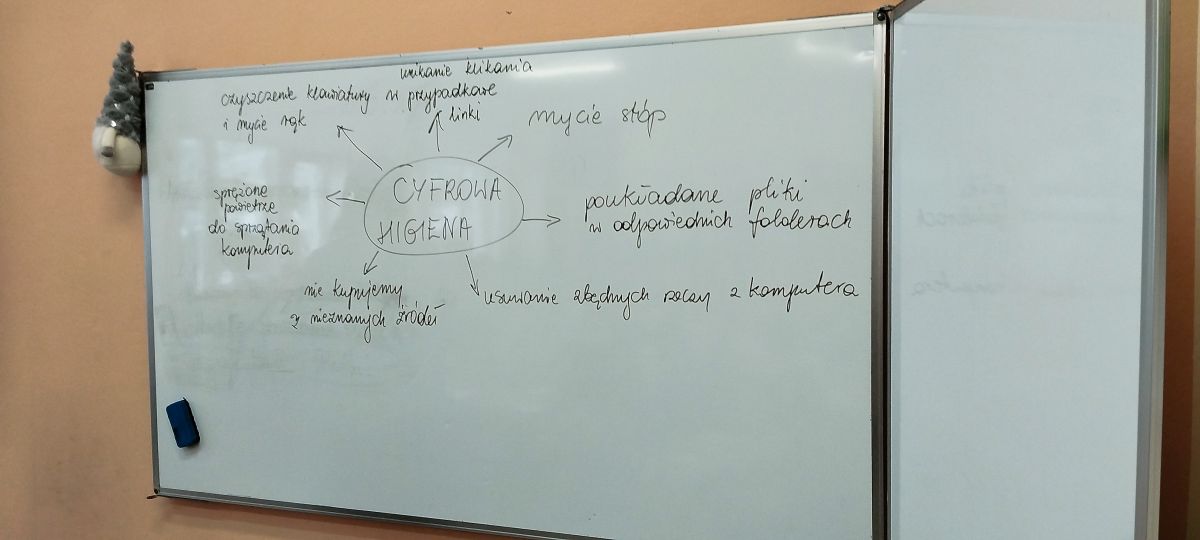 unikanie klikania
w przypadkowe
linki
czyszczenie klawiatury
i mycie rąk
mycie stóp
CYFROWA
HIGIENA
sprężone
powietrze
do sprzątania
komputera
poukładane pliki
w odpowiednich folderach
nie kupujemy
z nieznanych źródeł
usuwanie zbędnych rzeczy z komputera